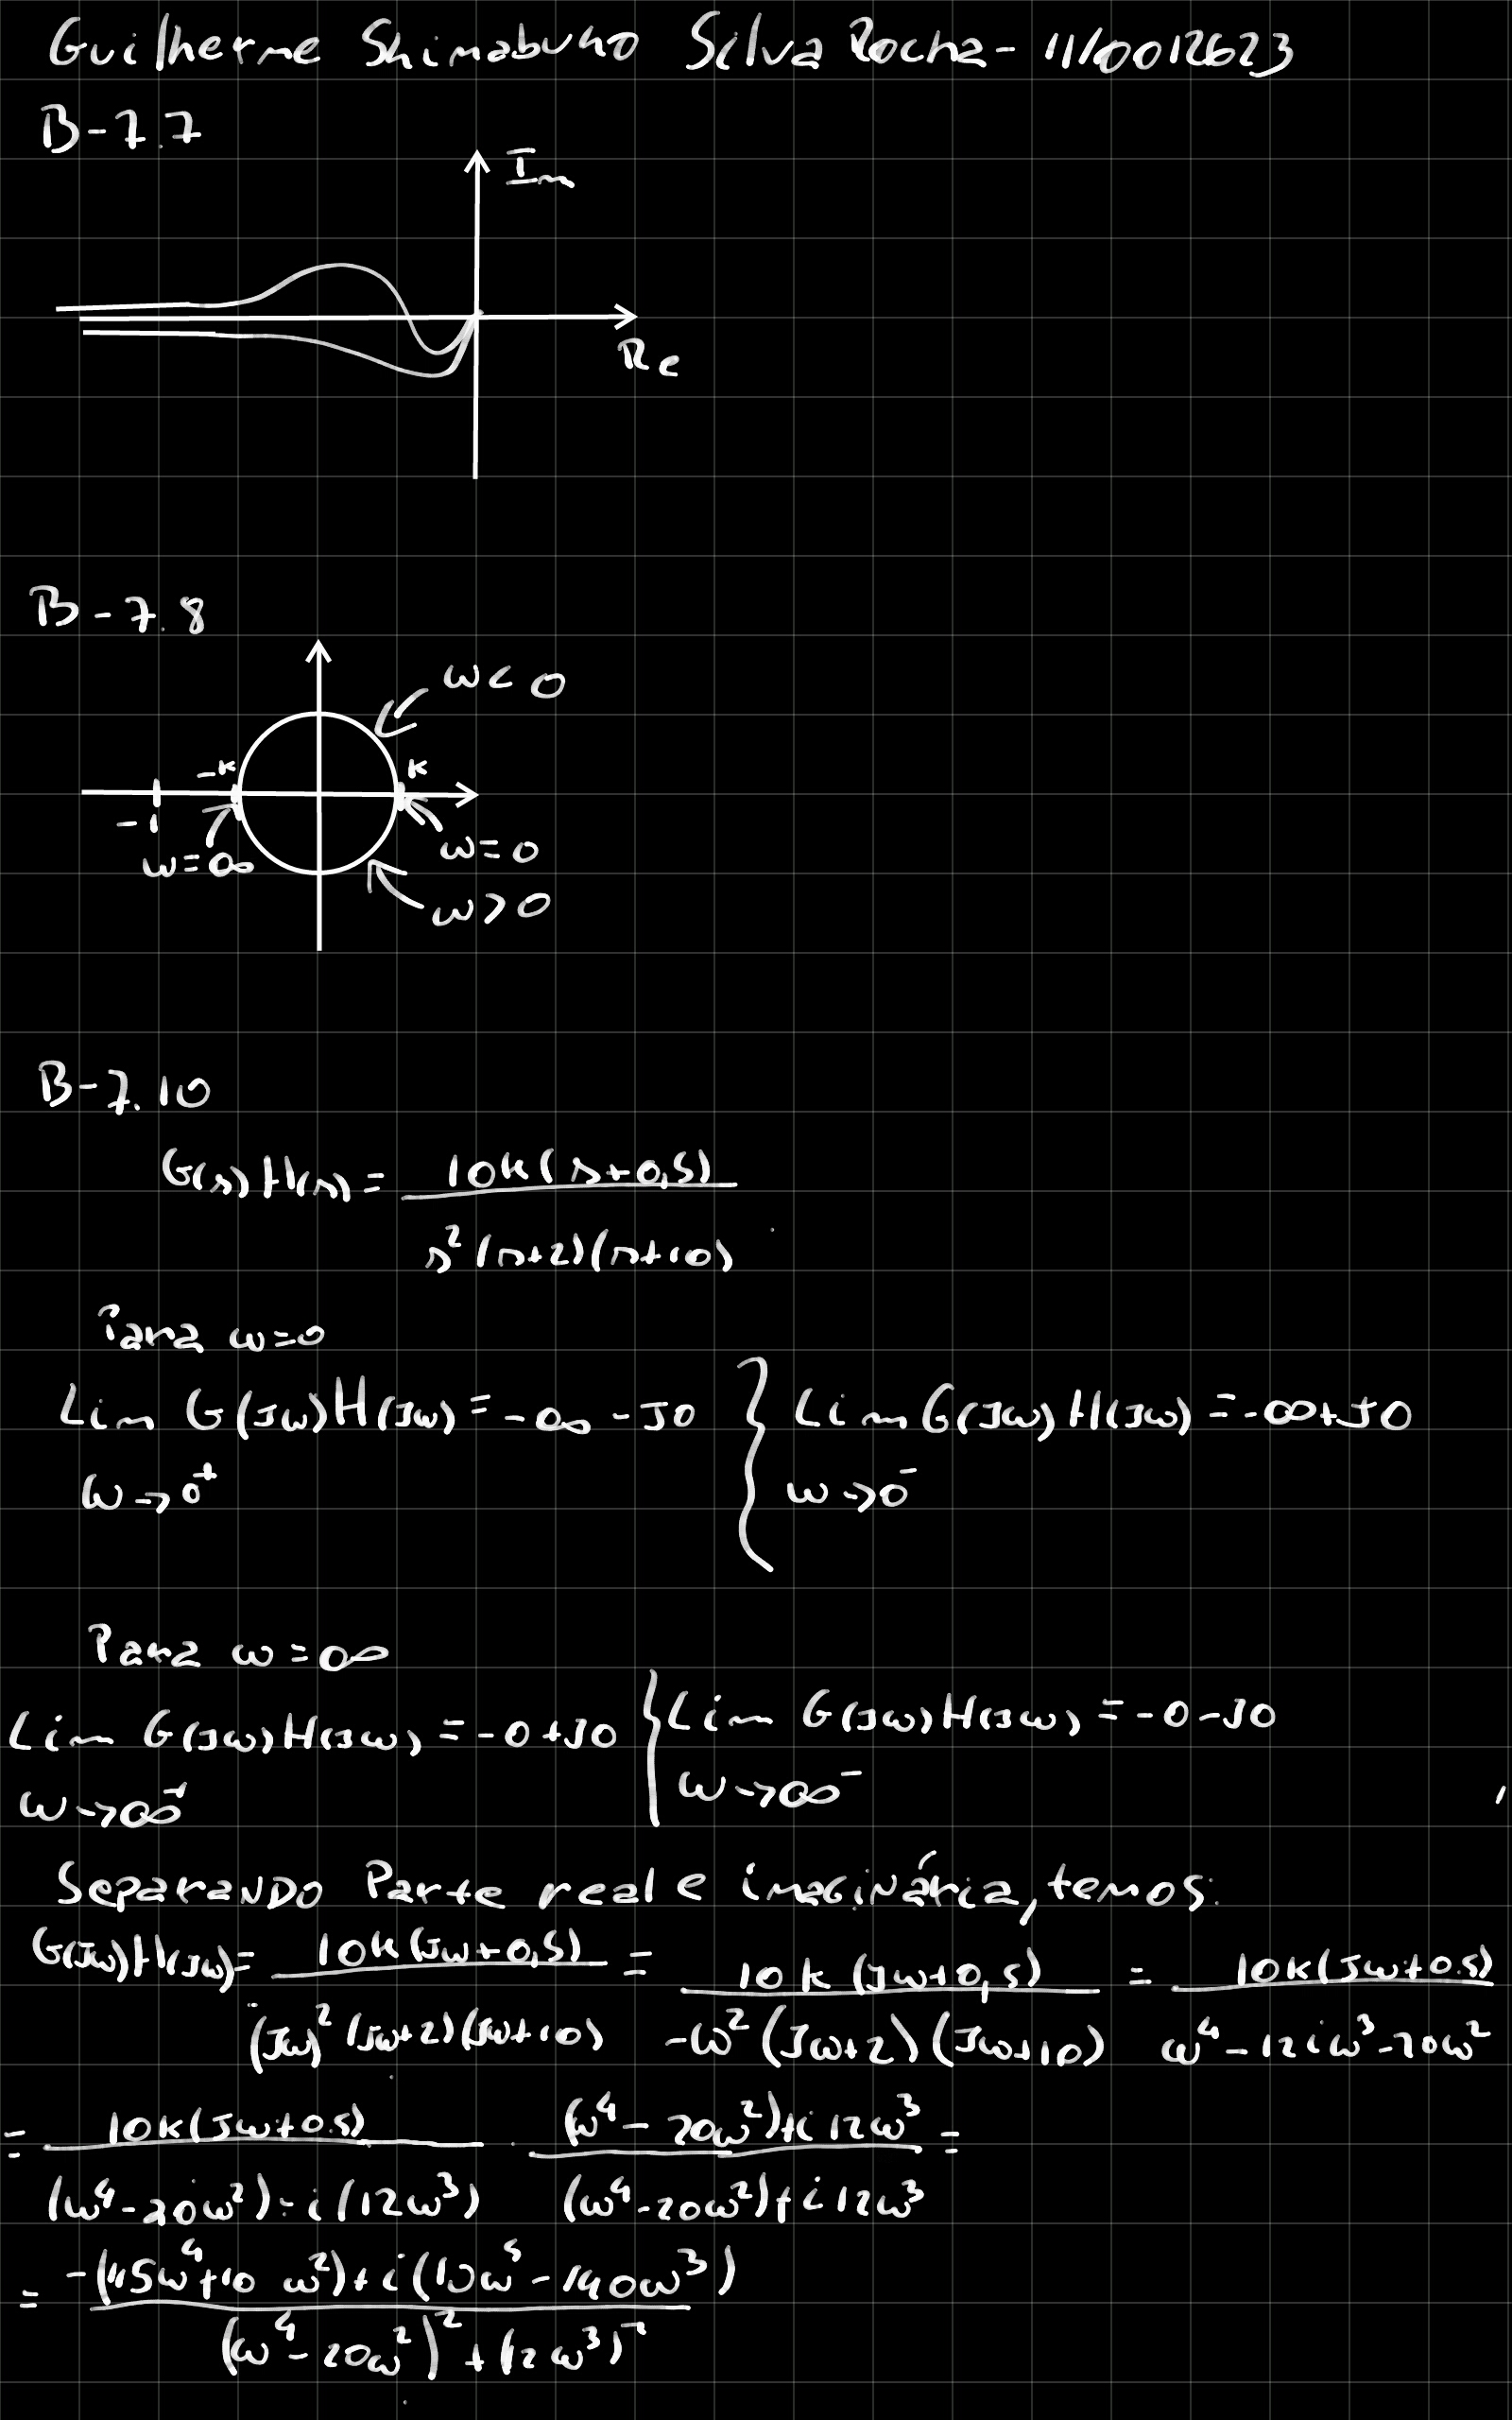 Guilherme Shimabuko Silva Rocha - 11/0012623
B-7.7
Im
Re
B-7.8
ω<0
-K K
-1
ω=∞ ω=0
ω>0
B-7.10
G(s)H(s) = 10K(s+0,5)
s²(s+2)(s+10)
Para ω=0
Lim G(Jω)H(Jω) = -∞ - J0 { Lim G(Jω)H(Jω) = -∞ + J0
ω→0⁺ ω→0⁻
Para ω=∞
Lim G(Jω)H(Jω) = -0 + J0 { Lim G(Jω)H(Jω) = -0 - J0
ω→∞⁺ ω→∞⁻
Separando Parte real e imaginária, temos:
G(Jω)H(Jω) = 10K(Jω+0,5) = 10K(Jω+0,5) = 10K(Jω+0.5)
(Jω)²(Jω+2)(Jω+10) -ω²(Jω+2)(Jω+10) ω⁴-12iω³-20ω²
= 10K(Jω+0.5) . (ω⁴-20ω²)+i12ω³ =
(ω⁴-20ω²)-i(12ω³) (ω⁴-20ω²)+i12ω³
= -(115ω⁴+10ω²)+i(10ω⁵-140ω³)
(ω⁴-20ω²)²+(12ω³)²